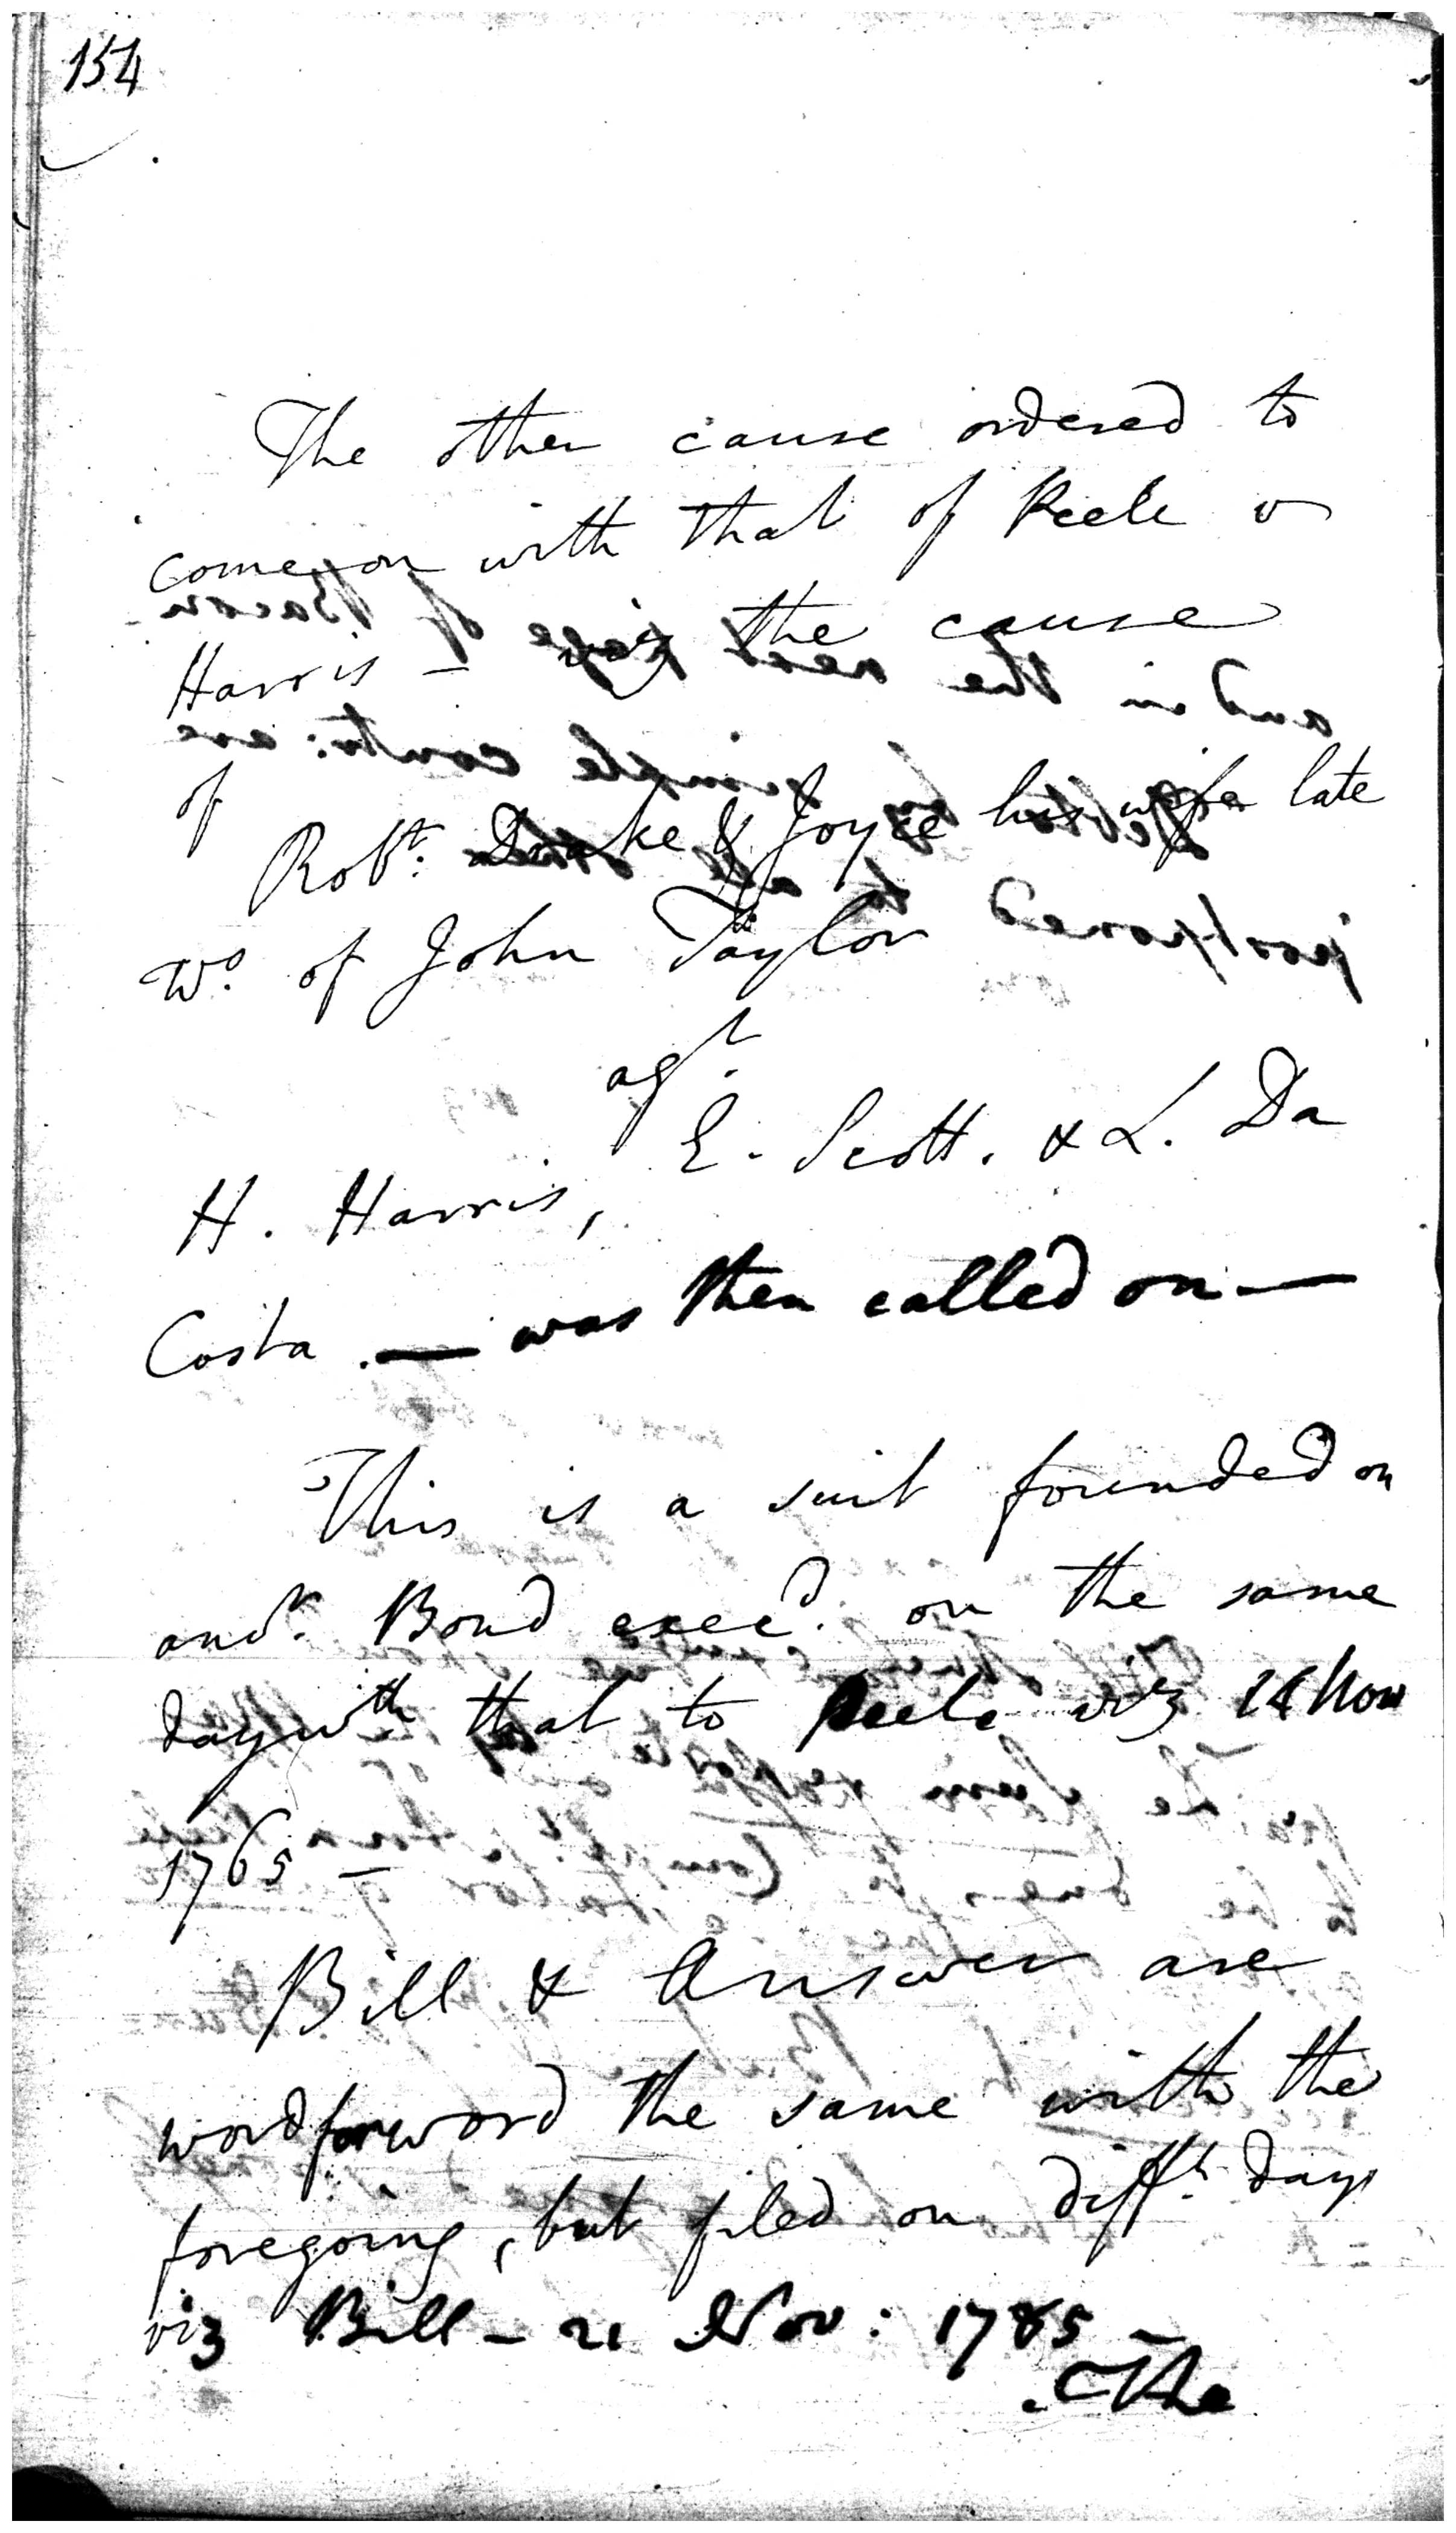 154
The other cause ordered to
come on with that of Peele v
Harris — viz the cause
of
Robt. Drake & Joyce his wife late
Wo. of John Taylor
agt.
H. Harris, E. Scott. & L. Da
Costa. — was then called on —
This is a suit founded on
anor. Bond execd. on the same
day wth that to Peele viz 14 Nov
1765 —
Bill & Answer are
word for word the same with the
foregoing, but filed on difft. days
viz Bill — 21 Nov: 1785 —
The